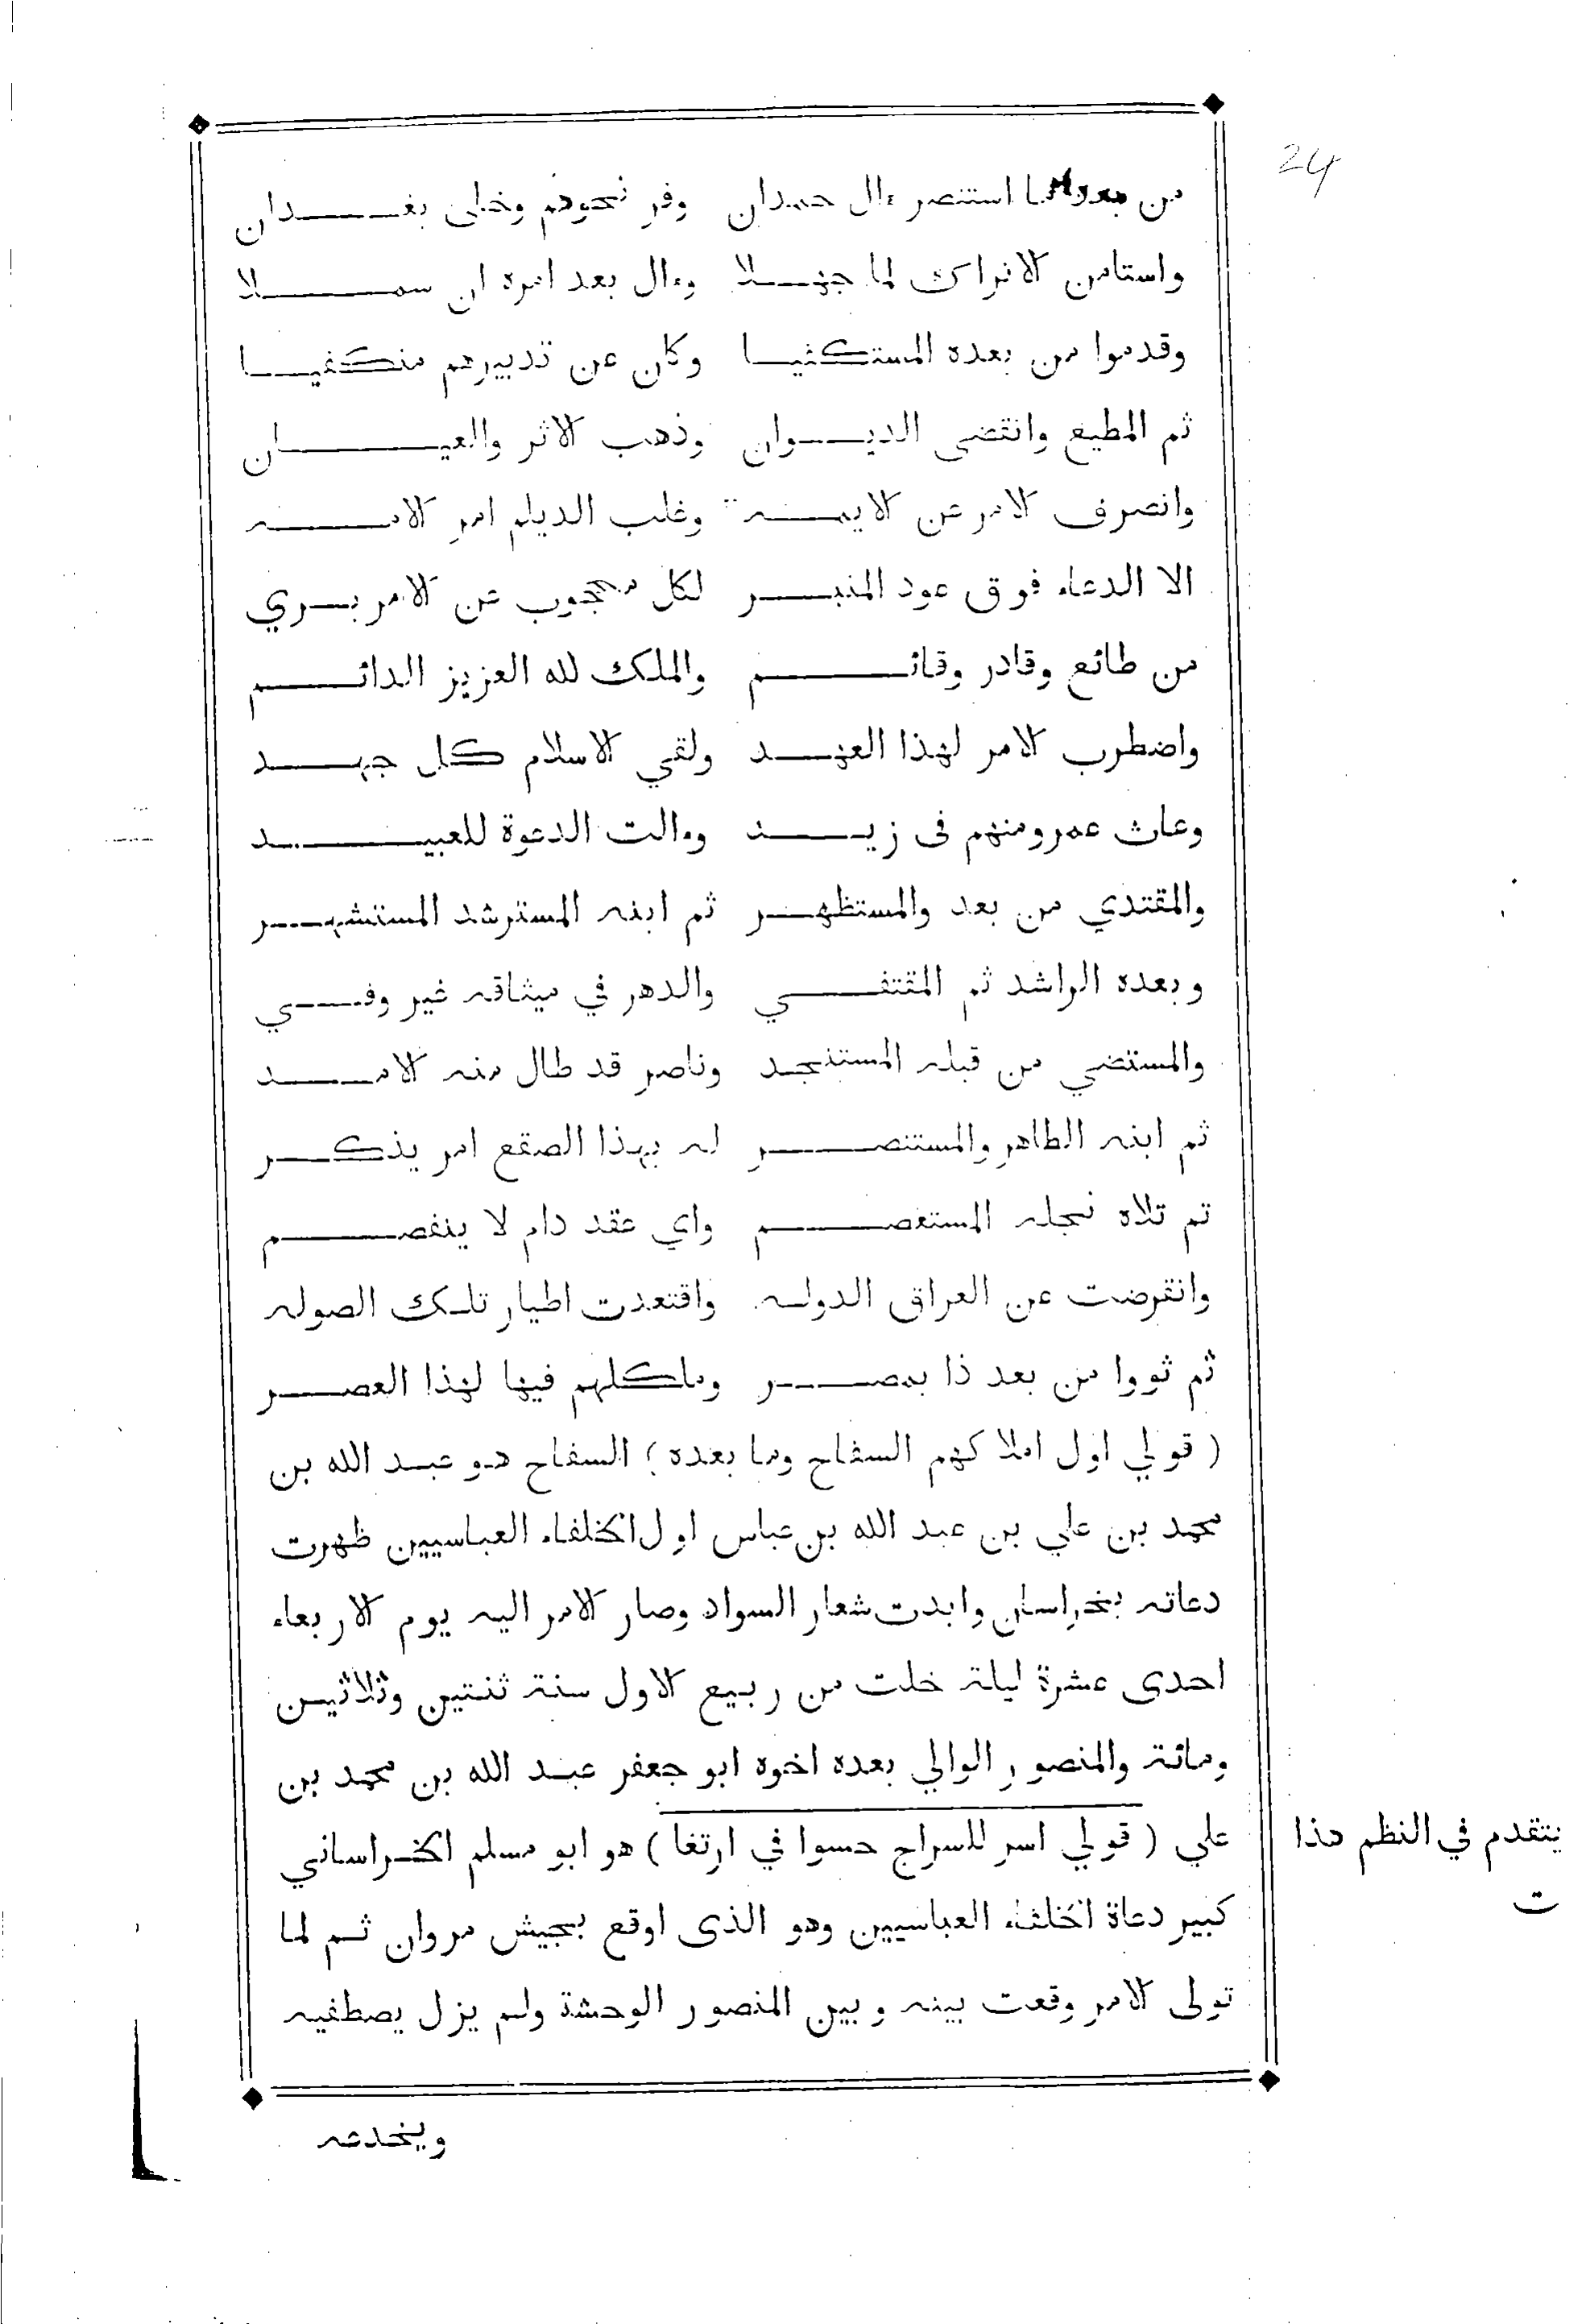 24
من بعد ما استنصر ءال حمدان وفر نحوهم وخلى بغـدان
واستامن الاتراك لما جهـلا وءال بعد امره ان سمـلا
وقدموا من بعده المستكفيـا وكان عن تدبيرهم منكفيـا
ثم المطيع وانقضى الديـوان وذهب الاثر والعيـان
وانصرف الامر عن الايمـة وغلب الديلم امر الامـه
الا الدعاء فوق عود المنبـر لكل محجوب عن الامر بـري
من طائع وقادر وقائـم والملك لله العزيز الدائـم
واضطرب الامر لهذا العهـد ولقي الاسلام كل جهـد
وعاث عمرو منهم فى زيـد وءالت الدعوة للعبيـد
والمقتدي من بعد والمستظهـر ثم ابنه المسترشد المستشهـر
وبعده الراشد ثم المقتفـي والدهر في ميثاقه غير وفـي
والمستضي من قبله المستنجـد وناصر قد طال منه الامـد
ثم ابنه الطاهر والمستنصـر له بهذا الصقع امر يذكـر
تم تلاه نجله المستعصـم واي عقد دام لا ينفصـم
وانقرضت عن العراق الدولـه واقتعدت اطيار تلـك الصوله
ثم ثووا من بعد ذا بمصـر وملكهم فيها لهذا العصـر
( قولي اول املاكهم السفاح وما بعده ) السفاح هـو عبـد الله بن
محمد بن علي بن عبد الله بن عباس اول الخلفاء العباسيين ظهرت
دعاته بخراسان وابدت شعار السواد وصار الامر اليه يوم الاربعاء
احدى عشرة ليلة خلت من ربيع الاول سنة ثنتين وثلاثيـن
ومائة والمنصور الوالي بعده اخوه ابو جعفر عبـد الله بن محمد بن
علي ( قولي اسر للسراج حسوا في ارتغا ) هو ابو مسلم الخـراساني
يتقدم في النظم هذا
ت
كبير دعاة الخلفاء العباسيين وهو الذى اوقع بجيش مروان ثـم لما
تولى الامر وقعت بينه وبين المنصور الوحشة ولم يزل يصطفيه
ويخدعه